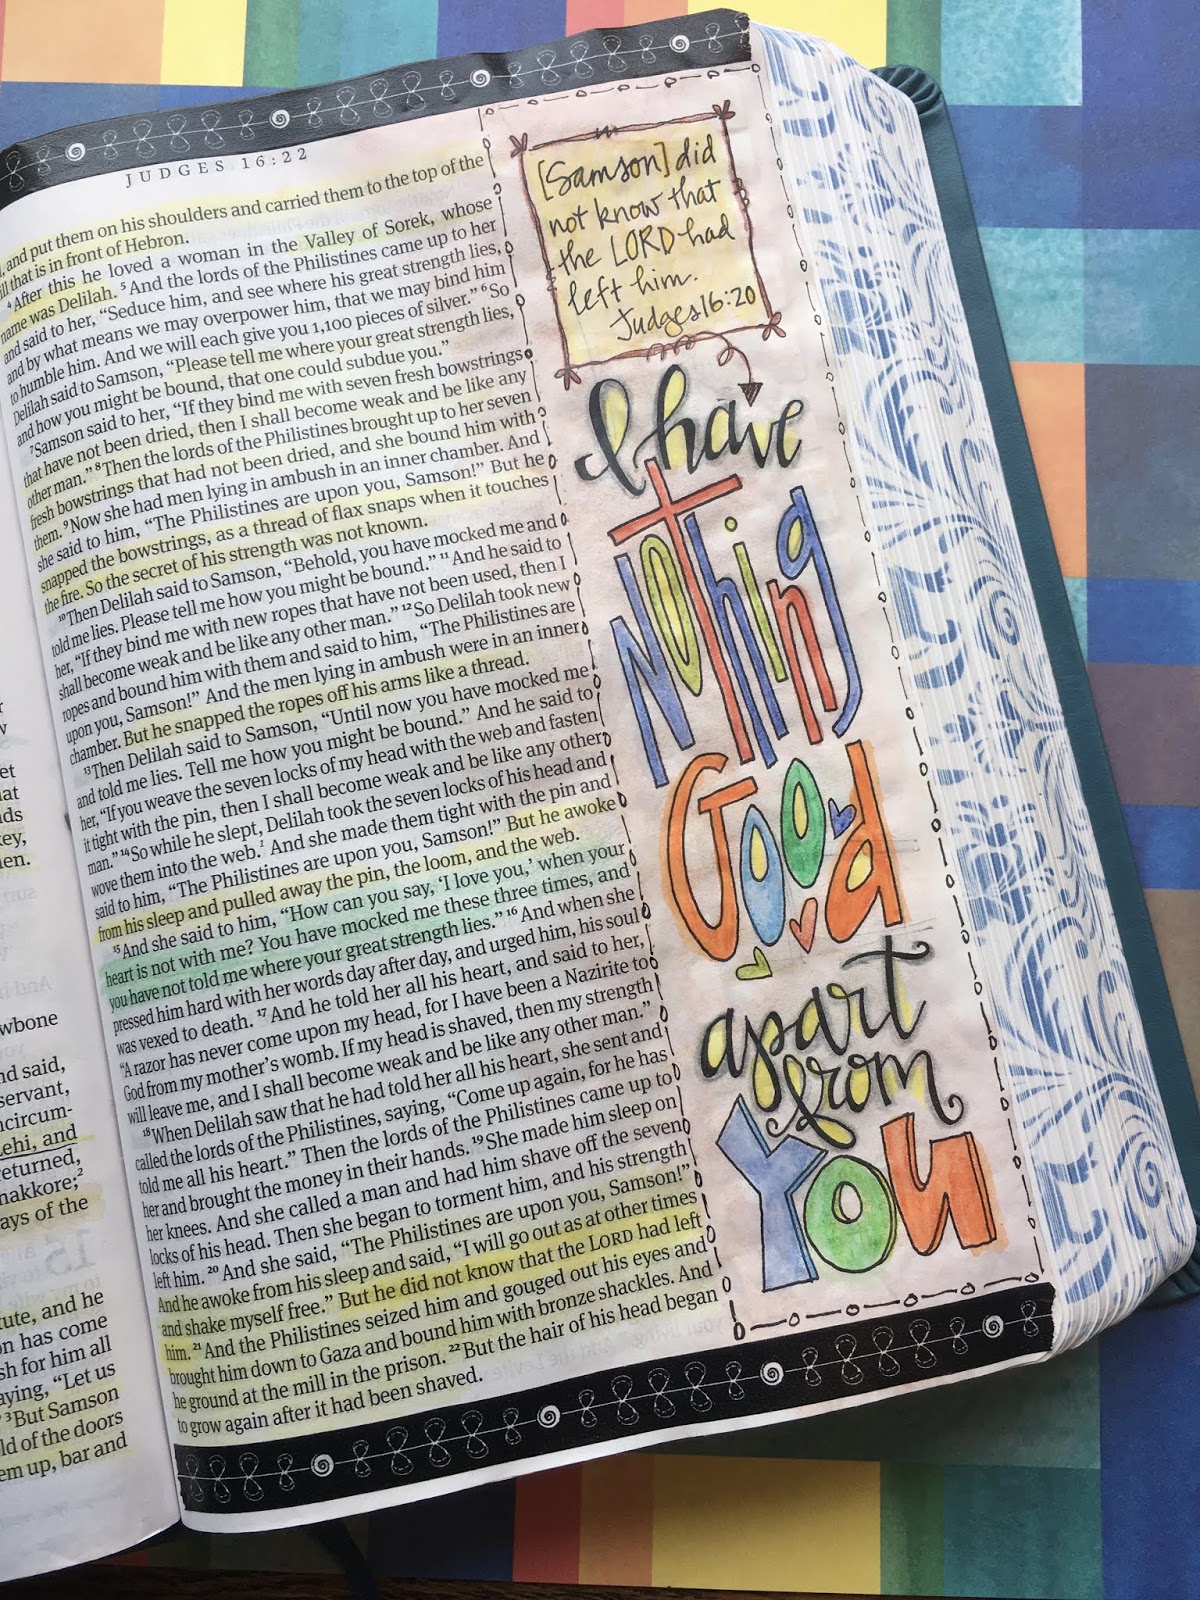 JUDGES 16:22
, and put them on his shoulders and carried them to the top of the
that is in front of Hebron.
4 After this he loved a woman in the Valley of Sorek, whose
name was Delilah. 5 And the lords of the Philistines came up to her
and said to her, “Seduce him, and see where his great strength lies,
and by what means we may overpower him, that we may bind him
to humble him. And we will each give you 1,100 pieces of silver.” 6 So
Delilah said to Samson, “Please tell me where your great strength lies,
and how you might be bound, that one could subdue you.”
7 Samson said to her, “If they bind me with seven fresh bowstrings
that have not been dried, then I shall become weak and be like any
other man.” 8 Then the lords of the Philistines brought up to her seven
fresh bowstrings that had not been dried, and she bound him with
them. 9 Now she had men lying in ambush in an inner chamber. And
she said to him, “The Philistines are upon you, Samson!” But he
snapped the bowstrings, as a thread of flax snaps when it touches
the fire. So the secret of his strength was not known.
10 Then Delilah said to Samson, “Behold, you have mocked me and
told me lies. Please tell me how you might be bound.” 11 And he said to
her, “If they bind me with new ropes that have not been used, then I
shall become weak and be like any other man.” 12 So Delilah took new
ropes and bound him with them and said to him, “The Philistines are
upon you, Samson!” And the men lying in ambush were in an inner
chamber. But he snapped the ropes off his arms like a thread.
13 Then Delilah said to Samson, “Until now you have mocked me
and told me lies. Tell me how you might be bound.” And he said to
her, “If you weave the seven locks of my head with the web and fasten
it tight with the pin, then I shall become weak and be like any other
man.” 14 So while he slept, Delilah took the seven locks of his head and
wove them into the web.1 And she made them tight with the pin and
said to him, “The Philistines are upon you, Samson!” But he awoke
from his sleep and pulled away the pin, the loom, and the web.
15 And she said to him, “How can you say, ‘I love you,’ when your
heart is not with me? You have mocked me these three times, and
you have not told me where your great strength lies.” 16 And when she
pressed him hard with her words day after day, and urged him, his soul
was vexed to death. 17 And he told her all his heart, and said to her,
“A razor has never come upon my head, for I have been a Nazirite to
God from my mother’s womb. If my head is shaved, then my strength
will leave me, and I shall become weak and be like any other man.”
18 When Delilah saw that he had told her all his heart, she sent and
called the lords of the Philistines, saying, “Come up again, for he has
told me all his heart.” Then the lords of the Philistines came up to
her and brought the money in their hands. 19 She made him sleep on
her knees. And she called a man and had him shave off the seven
locks of his head. Then she began to torment him, and his strength
left him. 20 And she said, “The Philistines are upon you, Samson!”
And he awoke from his sleep and said, “I will go out as at other times
and shake myself free.” But he did not know that the LORD had left
him. 21 And the Philistines seized him and gouged out his eyes and
brought him down to Gaza and bound him with bronze shackles. And
he ground at the mill in the prison. 22 But the hair of his head began
to grow again after it had been shaved.
[Samson] did
not know that
the LORD had
left him.
Judges 16:20
I have
NOThing
GOOd
apart
from
YOu
wbone
nd said,
servant,
ncircum-
Lehi, and
returned,
hakkore;2
ays of the
tute, and he
on has come
sh for him all
aying, “Let us
3 But Samson
ld of the doors
em up, bar and